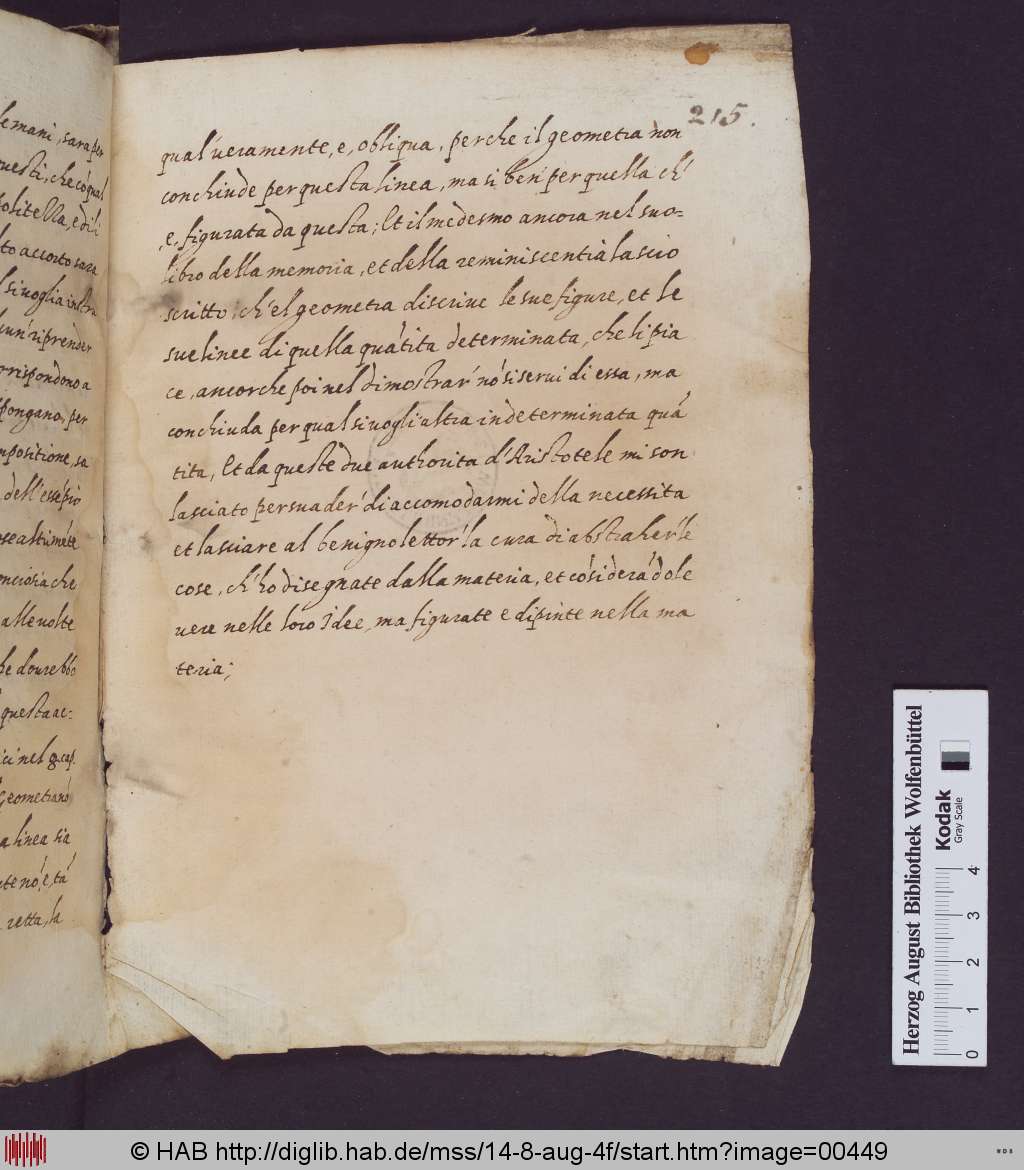 lemani, sara per
questi, che co qual
solitella, e di li
lto accorto sara
l si voglia instru
un' riprènder
rrispondono a
pongano, per
mpositione, sa
dell'
altimēte
onciosia che
alle volte
he dourebbo
questa ac:
ici nel 9. cap.
Geometra nō
a linea sia
te nō, é, tā
retta, la
215.
qual veramente, e, obliqua, perche il geometra nòn
conchiude per questa linea, ma si ben' per quella ch'
,e, figurata da questa; Et il medesmo ancora nel suo=
libro della memoria, et della reminiscentia lascio
scritto, ch' el geometra discrive le sue figure, et le
sue linee di quella quātita determinata, che li pia
ce, ancorche poi nel dimostrar' nō si servi di essa, ma
conchiuda per qual si vogli altra indeterminata quā
tita, Et da queste due authorita d'Aristotele mi son
lasciato persuader' di accomodarmi della necessita
et lasciare al benigno lettor' la cura di abstraher' le
cose, ch' ho disegnate dalla materia, et cōsiderādo le
vere nelle loro Idee, ma figurate e dipinte nella ma
teria;
Herzog August Bibliothek Wolfenbüttel
Kodak
Gray Scale
0 1 2 3 4
© HAB http://diglib.hab.de/mss/14-8-aug-4f/start.htm?image=00449